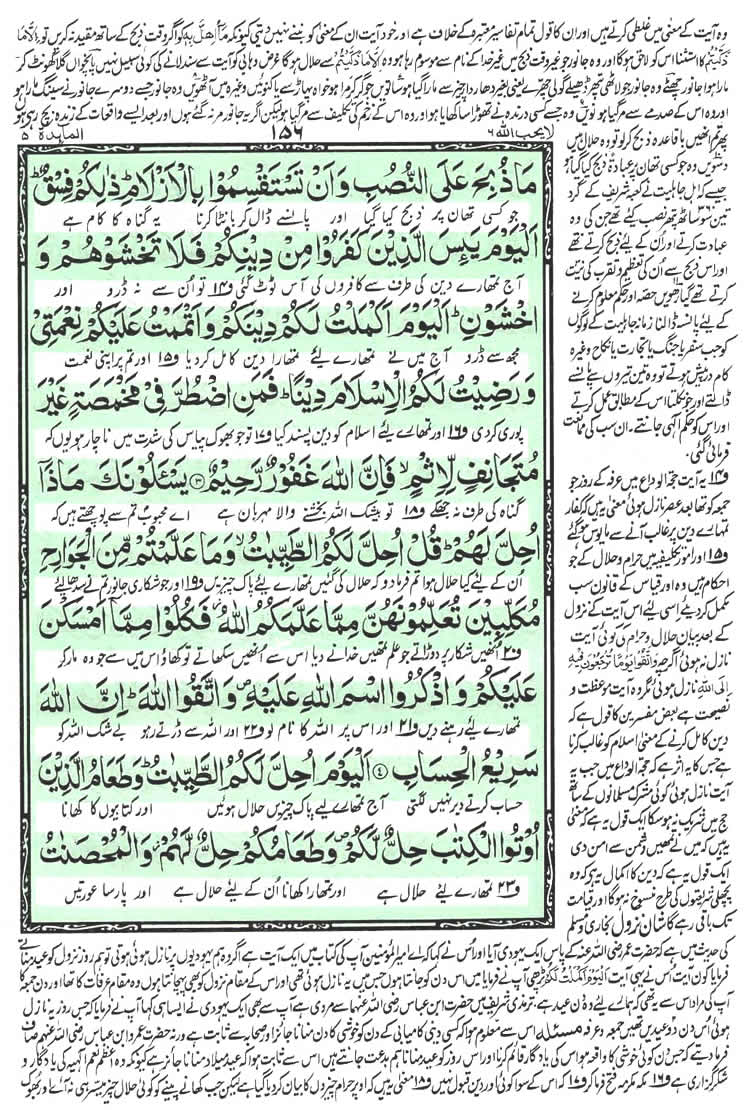 وہ آیت کے معنی میں غلطی کرتے ہیں اور ان کا قول تمام تفاسیر معتبرہ کے خلاف ہے اور خود آیت ان کے معنی کو بننے نہیں دیتی کیونکہ مَا اُهِلَّ بِهٖ کو اگر وقت ذبح کے ساتھ مقید نہ کریں تو اِلَّا مَا
ذَكَّيْتُمْ کا استثنا اس کو لاحق ہوگا اور وہ جانور جو غیر وقت ذبح میں غیر خدا کے نام سے موسوم رہا ہو وہ اِلَّا مَا ذَكَّيْتُمْ سے حلال ہوگا غرض وہابی کو آیت سے سند لانے کی کوئی سبیل نہیں پانچواں گلا گھونٹ کر
مارا ہوا جانور چھٹے وہ جانور جو لاٹھی پتھر ڈھیلے گولی چھرے یعنی بغیر دھاردار چیز سے مارا گیا ہو ساتویں جو گر کر مرا ہو خواہ پہاڑ سے یا کنوئیں وغیرہ میں آٹھویں وہ جانور جسے دوسرے جانور نے سینگ مارا ہو
اور وہ اس کے صدمے سے مر گیا ہو نویں وہ جسے کسی درندے نے تھوڑا سا کھایا ہو اور وہ اس کے زخم کی تکلیف سے مر گیا ہو لیکن اگر یہ جانور مر نہ گئے ہوں اور بعد ایسے واقعات کے زندہ بچ رہے ہوں
لا یحب اللہ ۶
۱۵۶
المائدة ۵
مَا ذُبِحَ عَلَى النُّصُبِ وَاَنْ تَسْتَقْسِمُوْا بِالْاَزْلَامِ ؕ ذٰلِكُمْ فِسْقٌ ؕ
جو کسی تھان پر ذبح کیا گیا اور پانسے ڈال کر بانٹا کرنا یہ گناہ کا کام ہے
اَلْيَوْمَ يَئِسَ الَّذِيْنَ كَفَرُوْا مِنْ دِيْنِكُمْ فَلَا تَخْشَوْهُمْ وَ
آج تمھارے دین کی طرف سے کافروں کی آس ٹوٹ گئی و۱۴ تو اُن سے نہ ڈرو اور
اخْشَوْنِ ؕ اَلْيَوْمَ اَكْمَلْتُ لَكُمْ دِيْنَكُمْ وَاَتْمَمْتُ عَلَيْكُمْ نِعْمَتِيْ
مجھ سے ڈرو آج میں نے تمھارے لیئے تمھارا دین کامل کر دیا و۱۵ اور تم پر اپنی نعمت
وَرَضِيْتُ لَكُمُ الْاِسْلَامَ دِيْنًا ؕ فَمَنِ اضْطُرَّ فِيْ مَخْمَصَةٍ غَيْرَ
پوری کر دی و۱۶ اور تمھارے لیئے اسلام کو دین پسند کیا و۱۷ تو جو بھوک پیاس کی شدت میں ناچار ہو یوں کہ
مُتَجَانِفٍ لِّاِثْمٍ ۙ فَاِنَّ اللّٰهَ غَفُوْرٌ رَّحِيْمٌ ۝۳ يَسْـَٔلُوْنَكَ مَاذَاۤ
گناہ کی طرف نہ جھکے و۱۸ تو بیشک اللہ بخشنے والا مہربان ہے اے محبوب تم سے پوچھتے ہیں کہ
اُحِلَّ لَهُمْ ؕ قُلْ اُحِلَّ لَكُمُ الطَّيِّبٰتُ ۙ وَمَا عَلَّمْتُمْ مِّنَ الْجَوَارِحِ
اُن کے لیئے کیا حلال ہوا تم فرما دو کہ حلال کی گئیں تمھارے لیئے پاک چیزیں و۱۹ اور جو شکاری جانور تم نے سدھا لیئے
مُكَلِّبِيْنَ تُعَلِّمُوْنَهُنَّ مِمَّا عَلَّمَكُمُ اللّٰهُ ؗ فَكُلُوْا مِمَّاۤ اَمْسَكْنَ
و۲۰ انھیں شکار پر دوڑاتے جو علم تمھیں خدا نے دیا اس سے انھیں سکھاتے تو کھاؤ اس میں سے جو وہ مار کر
عَلَيْكُمْ وَاذْكُرُوا اسْمَ اللّٰهِ عَلَيْهِ ۪ وَاتَّقُوا اللّٰهَ ؕ اِنَّ اللّٰهَ
تمھارے لیئے رہنے دیں و۲۱ اور اس پر اللہ کا نام لو و۲۲ اور اللہ سے ڈرتے رہو بے شک اللہ کو
سَرِيْعُ الْحِسَابِ ۝۴ اَلْيَوْمَ اُحِلَّ لَكُمُ الطَّيِّبٰتُ ؕ وَطَعَامُ الَّذِيْنَ
حساب کرتے دیر نہیں لگتی آج تمھارے لیے پاک چیزیں حلال ہوئیں اور کتابیوں کا کھانا
اُوْتُوا الْكِتٰبَ حِلٌّ لَّكُمْ ۪ وَطَعَامُكُمْ حِلٌّ لَّهُمْ ؗ وَالْمُحْصَنٰتُ
و۲۳ تمھارے لیئے حلال ہے اور تمھارا کھانا اُن کے لیئے حلال ہے اور پارسا عورتیں
پھر تمھیں باقاعدہ ذبح کر لو تو وہ حلال ہیں
دسویں وہ جو کسی تھان پر عبادۃً ذبح کیا گیا ہو
جیسے کہ اہل جاہلیت نے کعبہ شریف کے گرد
تین سو ساٹھ پتھر نصب کیئے تھے جن کی وہ
عبادت کرتے اور اُن کے لیئے ذبح کرتے تھے
اور اس ذبح سے اُن کی تعظیم و تقرب کی نیت
کرتے تھے گیارھویں حصّہ اور حکم معلوم کرنے
کے لیئے پانسہ ڈالنا زمانۂ جاہلیت کے لوگوں
کو جب سفر یا جنگ یا تجارت یا نکاح وغیرہ
کام درپیش ہوتے تو وہ تین تیروں سے پانسے
ڈالتے اور جو نکلتا اس کے مطابق عمل کرتے
اور اس کو حکم الٰہی جانتے۔ ان سب کی ممانعت
فرمائی گئی۔
و۱۴ یہ آیت حجۃ الوداع میں عرفہ کے روز جو
جمعہ کو تھا بعد عصر نازل ہوئی معنٰی یہ ہیں کہ کفار
تمہارے دین پر غالب آنے سے مایوس ہو گئے
و۱۵ اور امور تکلیفیہ میں حرام و حلال کے جو
احکام ہیں وہ اور قیاس کے قانون سب
مکمل کر دیئے اسی لیئے اس آیت کے نزول
کے بعد بیان حلال و حرام کی کوئی آیت
نازل نہ ہوئی اگرچہ وَاتَّقُوْا يَوْمًا تُرْجَعُوْنَ فِيْهِ
اِلَى اللهِ نازل ہوئی مگر وہ آیت موعظت و
نصیحت ہے بعض مفسرین کا قول ہے کہ
دین کامل کرنے کے معنی اسلام کو غالب کرنا
ہے جس کا یہ اثر ہے کہ حجۃ الوداع میں جب یہ
آیت نازل ہوئی کوئی مشرک مسلمانوں کے ساتھ
حج میں شریک نہ ہو سکا ایک قول یہ ہے کہ معنی
یہ ہیں کہ میں نے تمھیں دشمن سے امن دی
ایک قول یہ ہے کہ دین کا اکمال یہ ہے کہ وہ
پچھلی شریعتوں کی طرح منسوخ نہ ہوگا اور قیامت
تک باقی رہے گا شان نزول بخاری و مسلم
کی حدیث میں ہے کہ حضرت عمر رضی اللہ عنہ کے پاس ایک یہودی آیا اور اُس نے کہا کہ اے امیر المؤمنین آپ کی کتاب میں ایک آیت ہے اگر وہ ہم یہودیوں پر نازل ہوئی ہوتی تو ہم روز نزول کو عید مناتے
فرمایا کون آیت اُس نے یہی آیت اَلْيَوْمَ اَكْمَلْتُ لَكُمْ پڑھی آپ نے فرمایا میں اس دن کو جانتا ہوں جس میں یہ نازل ہوئی تھی اور اس کے مقام نزول کو بھی پہچانتا ہوں وہ مقام عرفات کا تھا اور دن جمعہ کا
آپ کی مراد اس سے یہ تھی کہ ہمارے لیئے وہ دن عید ہے۔ ترمذی شریف میں حضرت ابن عباس رضی اللہ عنہما سے مروی ہے آپ سے بھی ایک یہودی نے ایسا ہی کہا آپ نے فرمایا کہ جس روز یہ نازل
ہوئی اُس دن دو عیدیں تھیں جمعہ و عرفہ مسئلہ اس سے معلوم ہوا کہ کسی دینی کامیابی کے دن کو خوشی کا دن منانا جائز اور صحابہ سے ثابت ہے ورنہ حضرت عمر و ابن عباس رضی اللہ عنہم صاف
فرما دیتے کہ جس دن کوئی خوشی کا واقعہ ہو اس کی یادگار قائم کرنا اور اس روز کو عید منانا ہم بدعت جانتے ہیں اس سے ثابت ہوا کہ عید میلاد منانا جائز ہے کیونکہ وہ اعظم نعم الٰہیہ کی یادگار و
شکر گزاری ہے و۱۶ مکہ مکرمہ فتح فرما کر و۱۷ کہ اس کے سوا کوئی اور دین قبول نہیں و۱۸ معنی یہ ہیں کہ اوپر حرام چیزوں کا بیان کر دیا گیا ہے لیکن جب کھانے پینے کو کوئی حلال چیز میسر ہی نہ آئے اور بھوک